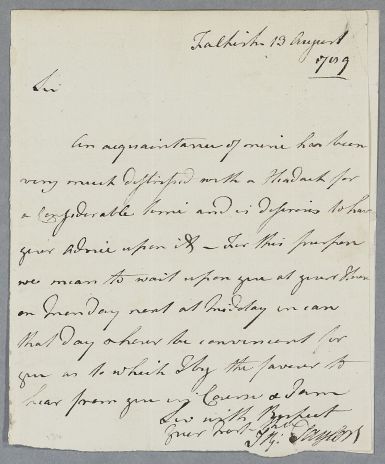 Falkirk 13 August
1789
Sir
An acquaintance of mine has been
very much distressed with a Headach for
a Considerable time and is desirous to have
your advice upon it – For this purpose
we mean to wait upon you at your House
on Monday next at Midday in case
that day & hour be convenient for
you as to which I beg the favour to
hear from you in Course & I am
Sir with Respect
Your most
Taylor